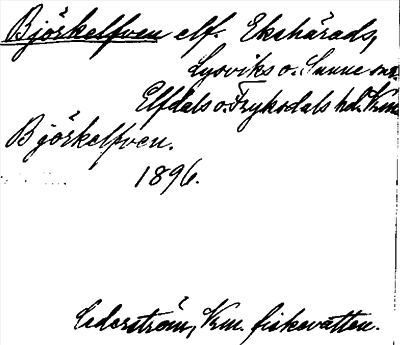 Björkelfven elf. Ekshärads,
Lysviks o. Sunne snr
Elfdals o. Fryksdals hd. Vrm
Björkelfven.
1896.
Cederström, Vrm. fiskevatten.